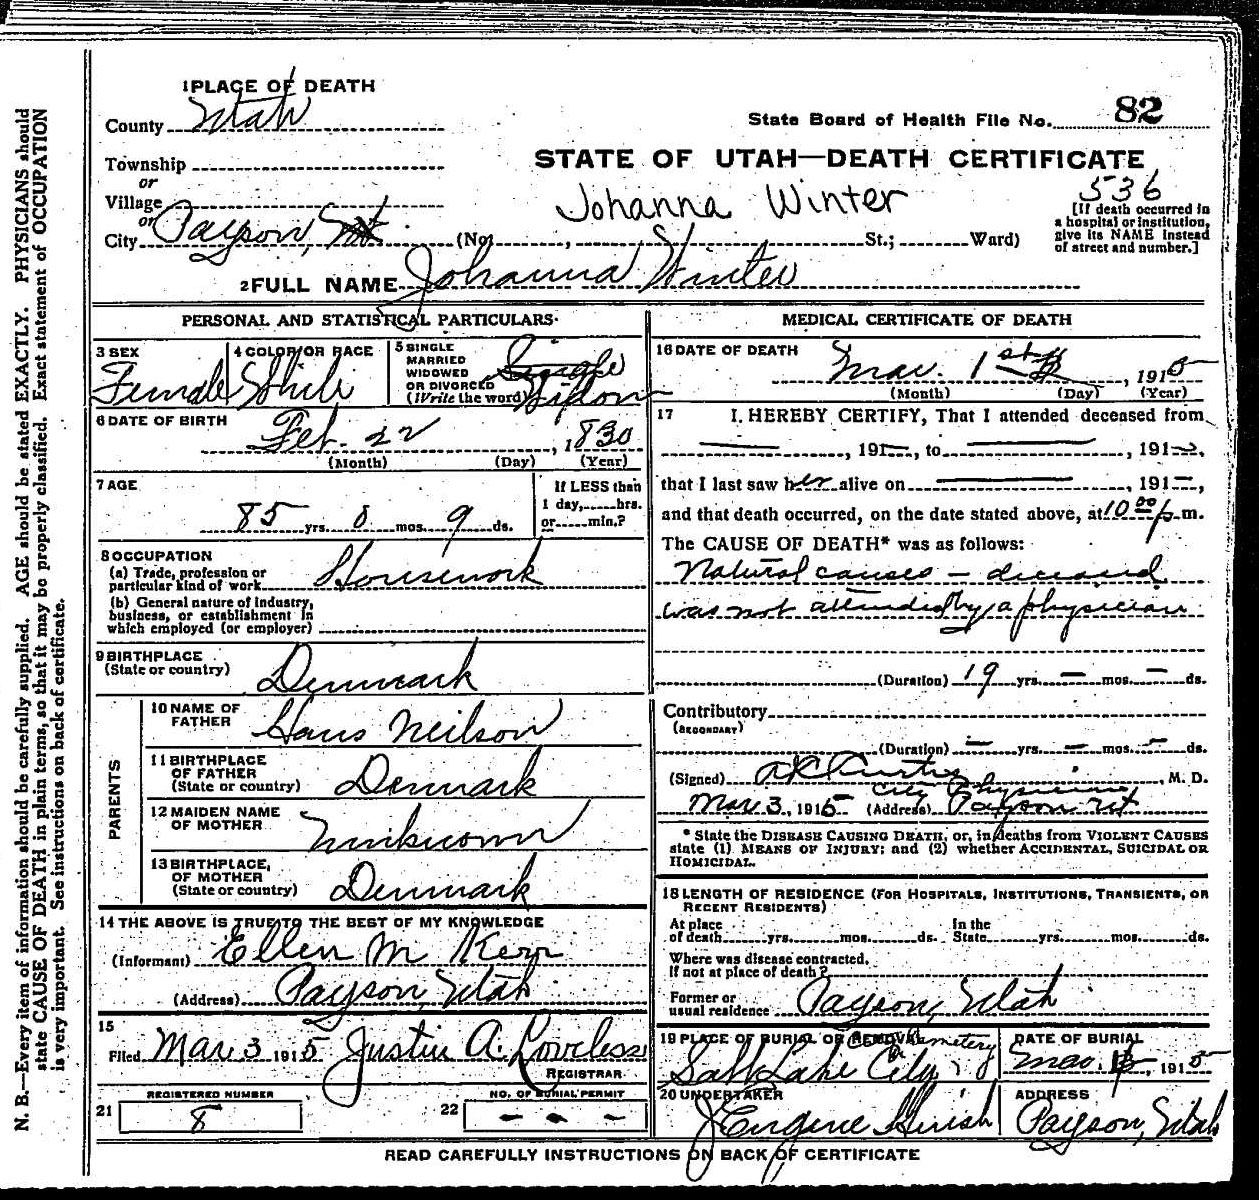 1 PLACE OF DEATH
County Utah
Township
or
Village
or
City Payson, Ut
(No. , St.; Ward)
State Board of Health File No. 82
STATE OF UTAH—DEATH CERTIFICATE
Johanna Winter
536
[If death occurred in
a hospital or institution,
give its NAME instead
of street and number.]
2 FULL NAME Johanna Winter
PERSONAL AND STATISTICAL PARTICULARS
3 SEX
Female
4 COLOR OR RACE
White
5 SINGLE
MARRIED
WIDOWED
OR DIVORCED
(Write the word)
Single
Widow
6 DATE OF BIRTH
Feb. 22, 1830
(Month) (Day) (Year)
7 AGE
85 yrs. 0 mos. 9 ds.
If LESS than
1 day,.....hrs.
or.....min.?
8 OCCUPATION
(a) Trade, profession or
particular kind of work Housework
(b) General nature of industry,
business, or establishment in
which employed (or employer)
9 BIRTHPLACE
(State or country)
Denmark
PARENTS
10 NAME OF
FATHER
Hans Neilson
11 BIRTHPLACE
OF FATHER
(State or country)
Denmark
12 MAIDEN NAME
OF MOTHER
Unknown
13 BIRTHPLACE,
OF MOTHER
(State or country)
Denmark
14 THE ABOVE IS TRUE TO THE BEST OF MY KNOWLEDGE
(Informant) Ellen M Kerr
(Address) Payson, Utah
15
Filed Mar 3 1915 Justin A. Loveless
REGISTRAR
REGISTERED NUMBER
21 8
NO. OF BURIAL PERMIT
22 - - -
MEDICAL CERTIFICATE OF DEATH
16 DATE OF DEATH
Mar. 1st, 1915
(Month) (Day) (Year)
17 I HEREBY CERTIFY, That I attended deceased from
—, 191—, to —, 191—,
that I last saw her alive on —, 191—,
and that death occurred, on the date stated above, at 10 00 p. m.
The CAUSE OF DEATH* was as follows:
Natural causes — deceased
was not attended by a physician
(Duration) 19 yrs. — mos. — ds.
Contributory
(SECONDARY)
(Duration) — yrs. — mos. — ds.
(Signed) A K Curtis, M. D.
City Physician
Mar 3, 1915 (Address) Payson Ut
* State the DISEASE CAUSING DEATH, or, in deaths from VIOLENT CAUSES
state (1) MEANS OF INJURY; and (2) whether ACCIDENTAL, SUICIDAL OR
HOMICIDAL.
18 LENGTH OF RESIDENCE (FOR HOSPITALS, INSTITUTIONS, TRANSIENTS, OR
RECENT RESIDENTS)
At place
of death yrs. mos. ds.
In the
State yrs. mos. ds.
Where was disease contracted,
if not at place of death?
Former or
usual residence Payson, Utah
19 PLACE OF BURIAL OR REMOVAL
City Cemetery
Salt Lake City
DATE OF BURIAL
Mar. , 1915
20 UNDERTAKER
J Eugene
ADDRESS
Payson, Utah
READ CAREFULLY INSTRUCTIONS ON BACK OF CERTIFICATE
N. B.—Every item of information should be carefully supplied. AGE should be stated EXACTLY. PHYSICIANS should
state CAUSE OF DEATH in plain terms, so that it may be properly classified. Exact statement of OCCUPATION
is very important. See instructions on back of certificate.